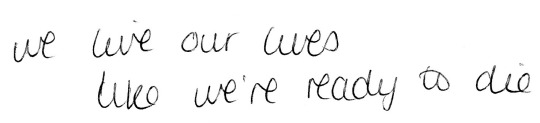 we live our lives
like we're ready to die